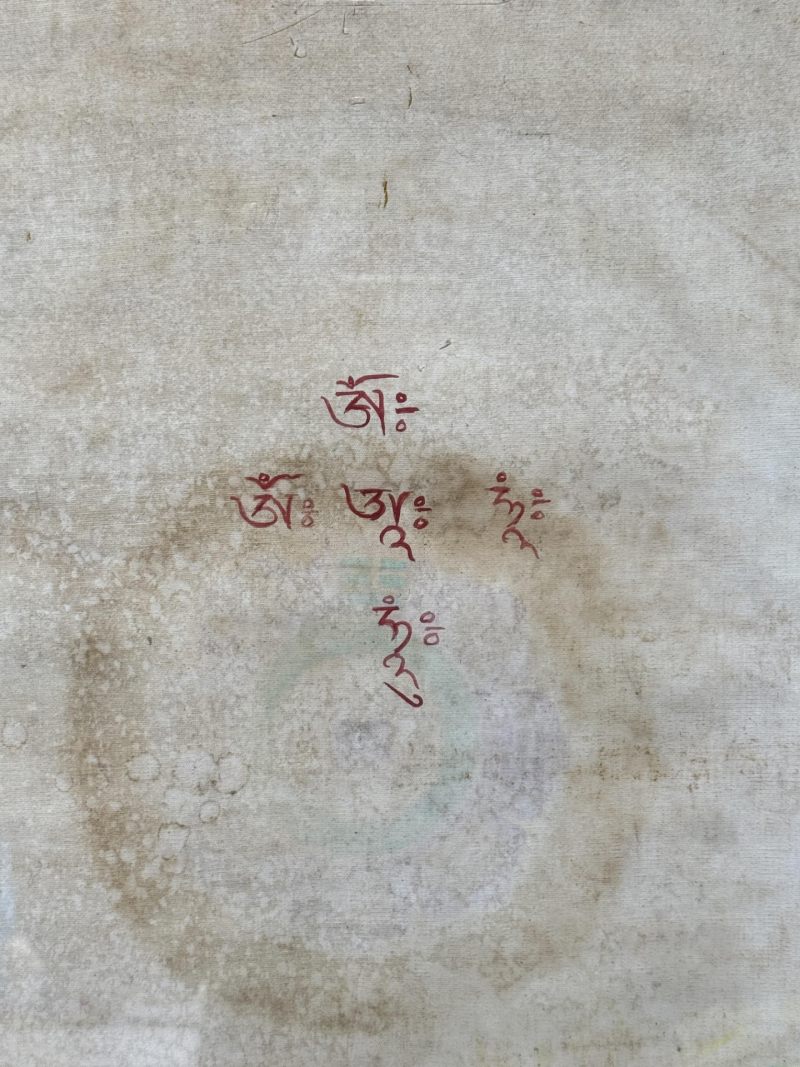 ཨོཾ༔
ཨོཾ༔ ཨཱ༔ ཧཱཾ༔
ཧཱུཾ༔